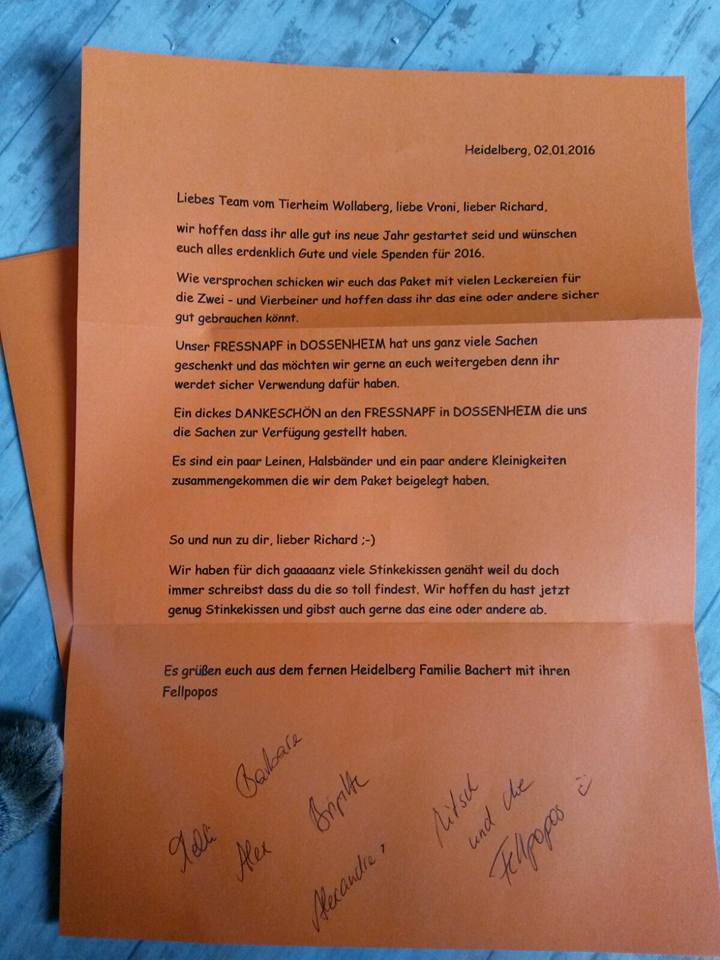 Heidelberg, 02.01.2016
Liebes Team vom Tierheim Wollaberg, liebe Vroni, lieber Richard,
wir hoffen dass ihr alle gut ins neue Jahr gestartet seid und wünschen
euch alles erdenklich Gute und viele Spenden für 2016.
Wie versprochen schicken wir euch das Paket mit vielen Leckereien für
die Zwei - und Vierbeiner und hoffen dass ihr das eine oder andere sicher
gut gebrauchen könnt.
Unser FRESSNAPF in DOSSENHEIM hat uns ganz viele Sachen
geschenkt und das möchten wir gerne an euch weitergeben denn ihr
werdet sicher Verwendung dafür haben.
Ein dickes DANKESCHÖN an den FRESSNAPF in DOSSENHEIM die uns
die Sachen zur Verfügung gestellt haben.
Es sind ein paar Leinen, Halsbänder und ein paar andere Kleinigkeiten
zusammengekommen die wir dem Paket beigelegt haben.
So und nun zu dir, lieber Richard ;-)
Wir haben für dich gaaaaanz viele Stinkekissen genäht weil du doch
immer schreibst dass du die so toll findest. Wir hoffen du hast jetzt
genug Stinkekissen und gibst auch gerne das eine oder andere ab.
Es grüßen euch aus dem fernen Heidelberg Familie Bachert mit ihren
Fellpopos
Barbara
Brigitte
Alex
Alexandra,
und die
Fellpopos